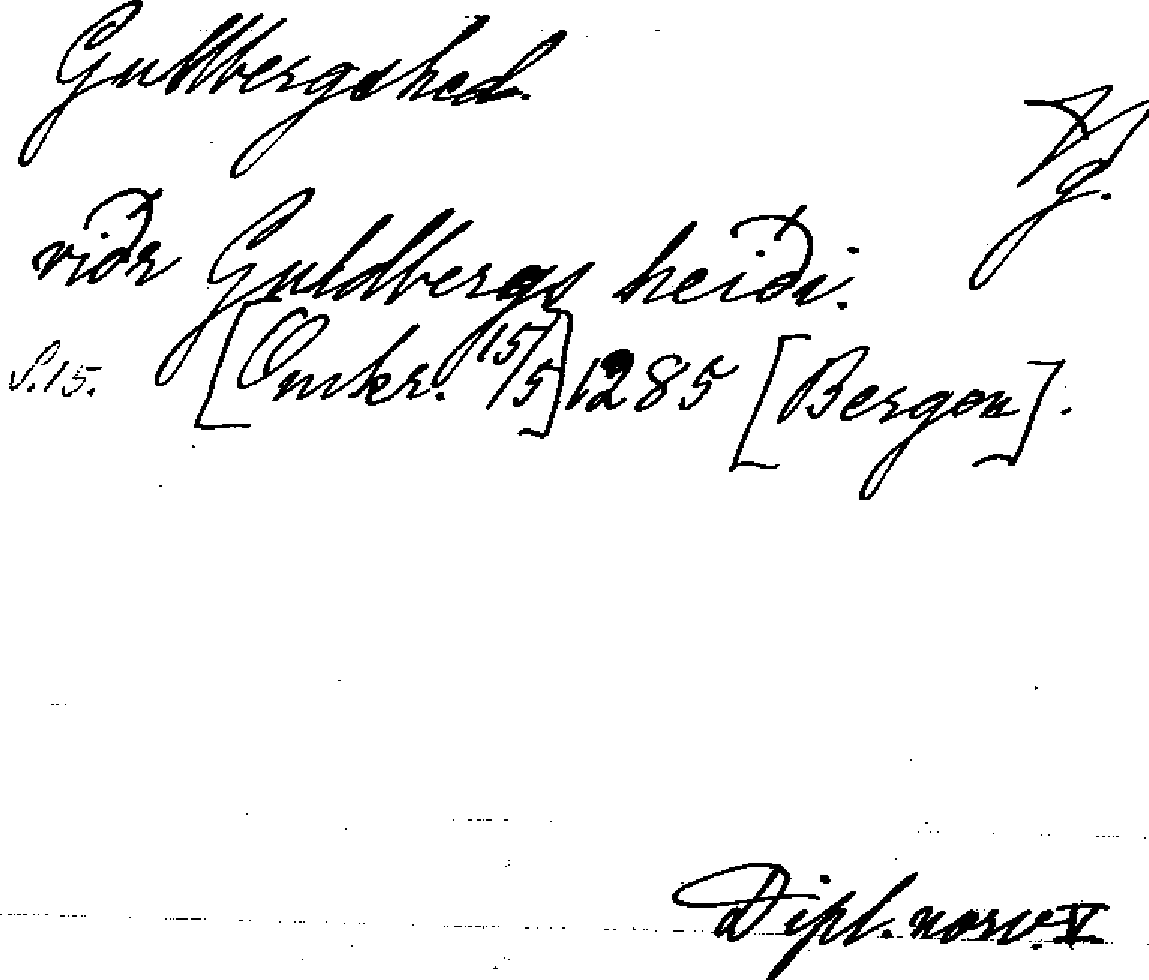 Gullbergshed.
Vg.
viðr Guldbergs heiði.
S. 15. [Omkr. 15/5] 1285 [Bergen].
Dipl. norv. V.